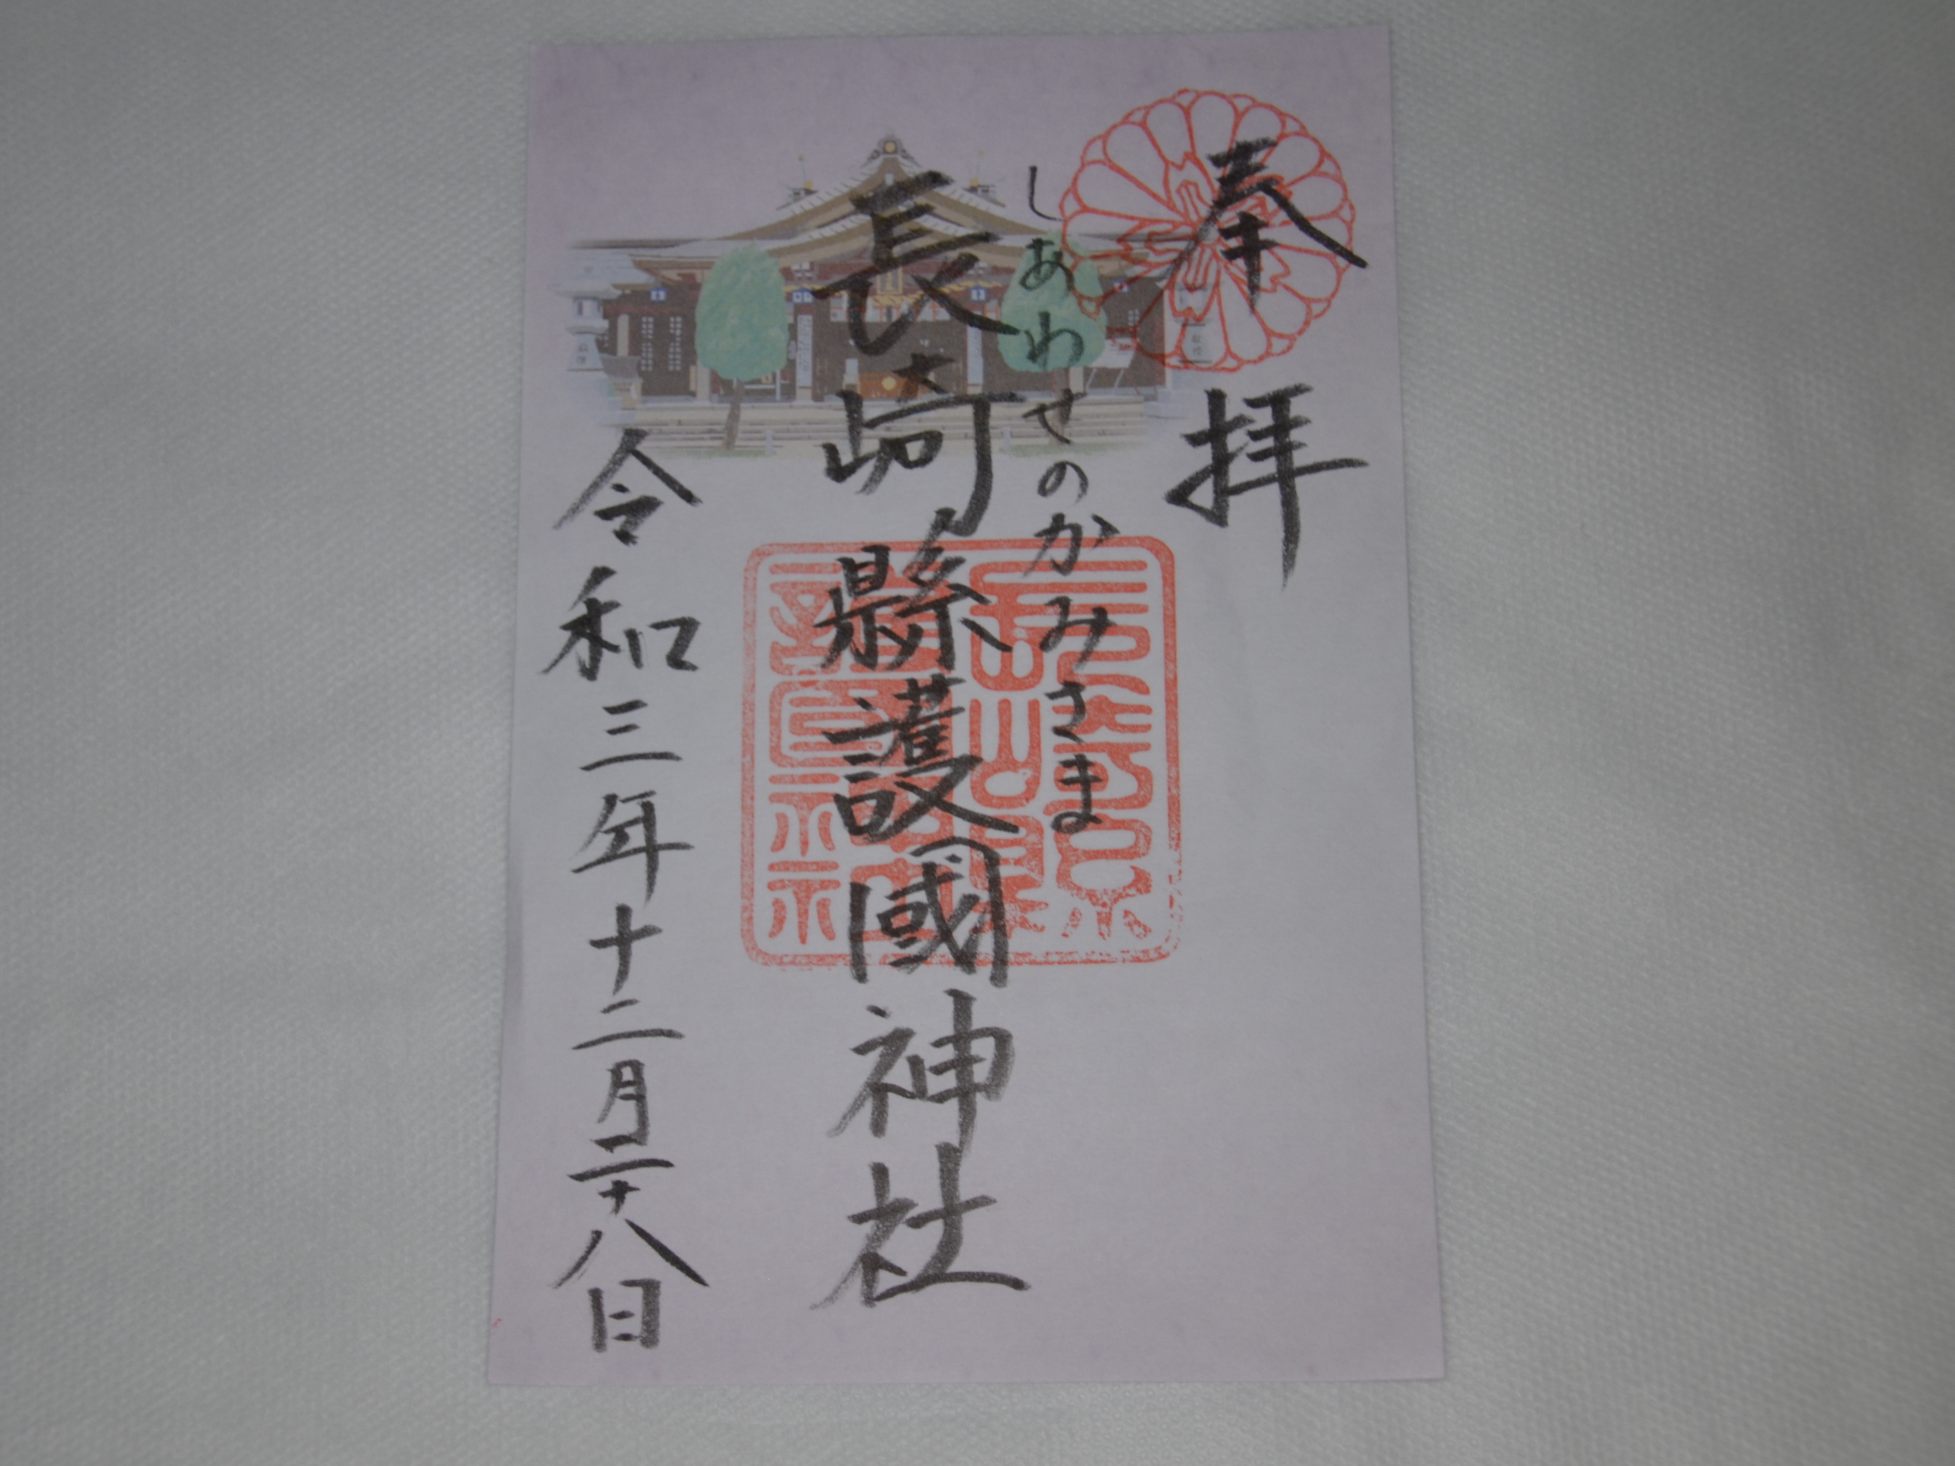 奉拝
しあわせのかみさま
長崎縣護國神社
令和三年十二月二十八日